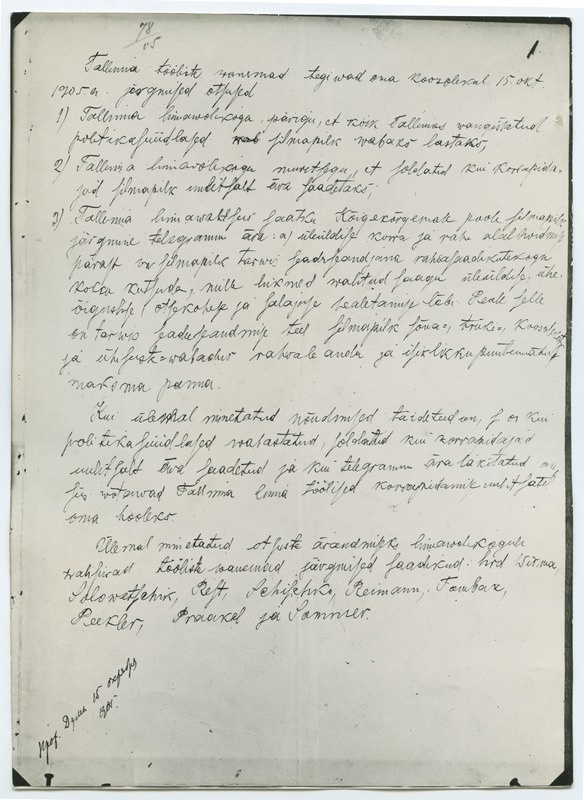 78
05
1.
Tallinna tööliste wanemad tegiwad oma koosolekul 15. okt.
1905 a. järgmised otsused
1) Tallinna linnawolikogu pärigu, et kõik Tallinnas wangistatud
politikasüüdlased silmapilk wabaks lastaks,
2) Tallinna linnawolikogu muretsegu, et soldatid kui korrapida-
jad silmapilk uulitsalt ära saadetaks;
3) Tallinna linnawalitsus saatku Kõigekõrgemale poole silmapilk
järgmine telegramm ära: a) üleüldise korra ja rahu alalhoidmise
pärast on silmapilk tarwis seadusandjana rahwasaadikutekogu
kokku kutsuda, mille liikmed walitud saagu üleüldise, ühe-
õiguslise, otsekohese ja salajase hääletamise läbi. Peale selle
on tarwis seaduseandmise teel silmapilk sõna-, trüki-, koosoleku
ja ühisuste-wabadus rahwale anda ja isiklikku puutumatust
maksma panna.
Kui ülemal nimetatud nõudmised täidetud on, s. o. kui
politikasüüdlased wabastatud, soldatid kui korrapidajad
uulitsalt ära saadetud ja kui telegramm ära läkitatud on,
siis wõtawad Tallinna linna töölised korrapidamise uulitsatel
oma hooleks.
Ülemal nimetatud otsuste äraandmiseks linnawolikogule
walisiwad tööliste wanemad järgmised saadikud: hrd Wirma
Solowetschik, Rest, Schischko, Reimann, Tombak,
Peekler, Praakel ja Sommer.
Прог. Думы 15 октября
1905.